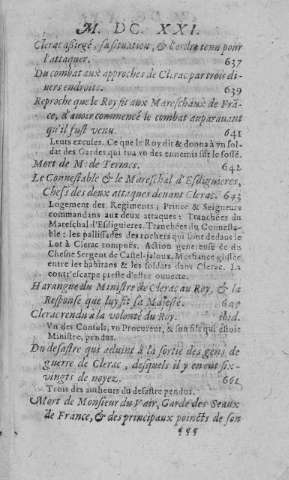 M. DC. XXI.
Clerac aßiegé, sa situation, & l'ordre tenu pour
l'attaquer. 637
Du combat aux approches de Clerac par trois di-
uers endroits. 639
Reproche que le Roy fit aux Mareschaux de Fra-
ce, d'auoir commencé le combat auparauant
qu'il fust venu. 641
Leurs excuses. Ce que le Roy dit & donna à vn sol-
dat des Gardes qui tua vn des ennemis sur le fossé.
Mort de M. de Termes. 642
Le Connestable & le Mareschal d'Esdiguieres,
Chefs des deux attaques deuant Clerac. 643
Logement des Regiments; Prince & Seigneurs
commandans aux deux attaques: Tranchées du
Mareschal d'Esdiguieres. Tranchées du Connesta-
ble: les pallissades des rochers qui sont dedans le
Lot à Clerac rompuës. Action genereuse de du
Chesne Sergent de Castel-jaloux. Mechance glissée
entre les habitans & les soldats dans Clerac. La
contr'escarpe presse d'estre ouuerte.
Harangue du Ministre de Clerac au Roy, & la
Response que luy fit sa Majesté.
Clerac rendu à la volonté du Roy. ibid.
Vn des Consuls, vn Procureur, & son fils qui estoit
Ministre, pendus.
Du desastre qui aduint à la sortie des gens de
guerre de Clerac, desquels il y en eut six-
vingts de noyez. 661
Trois des autheurs du desastre pendus.
Mort de Monsieur du Vair, Garde des Seaux
de France, & des principaux poincts de son